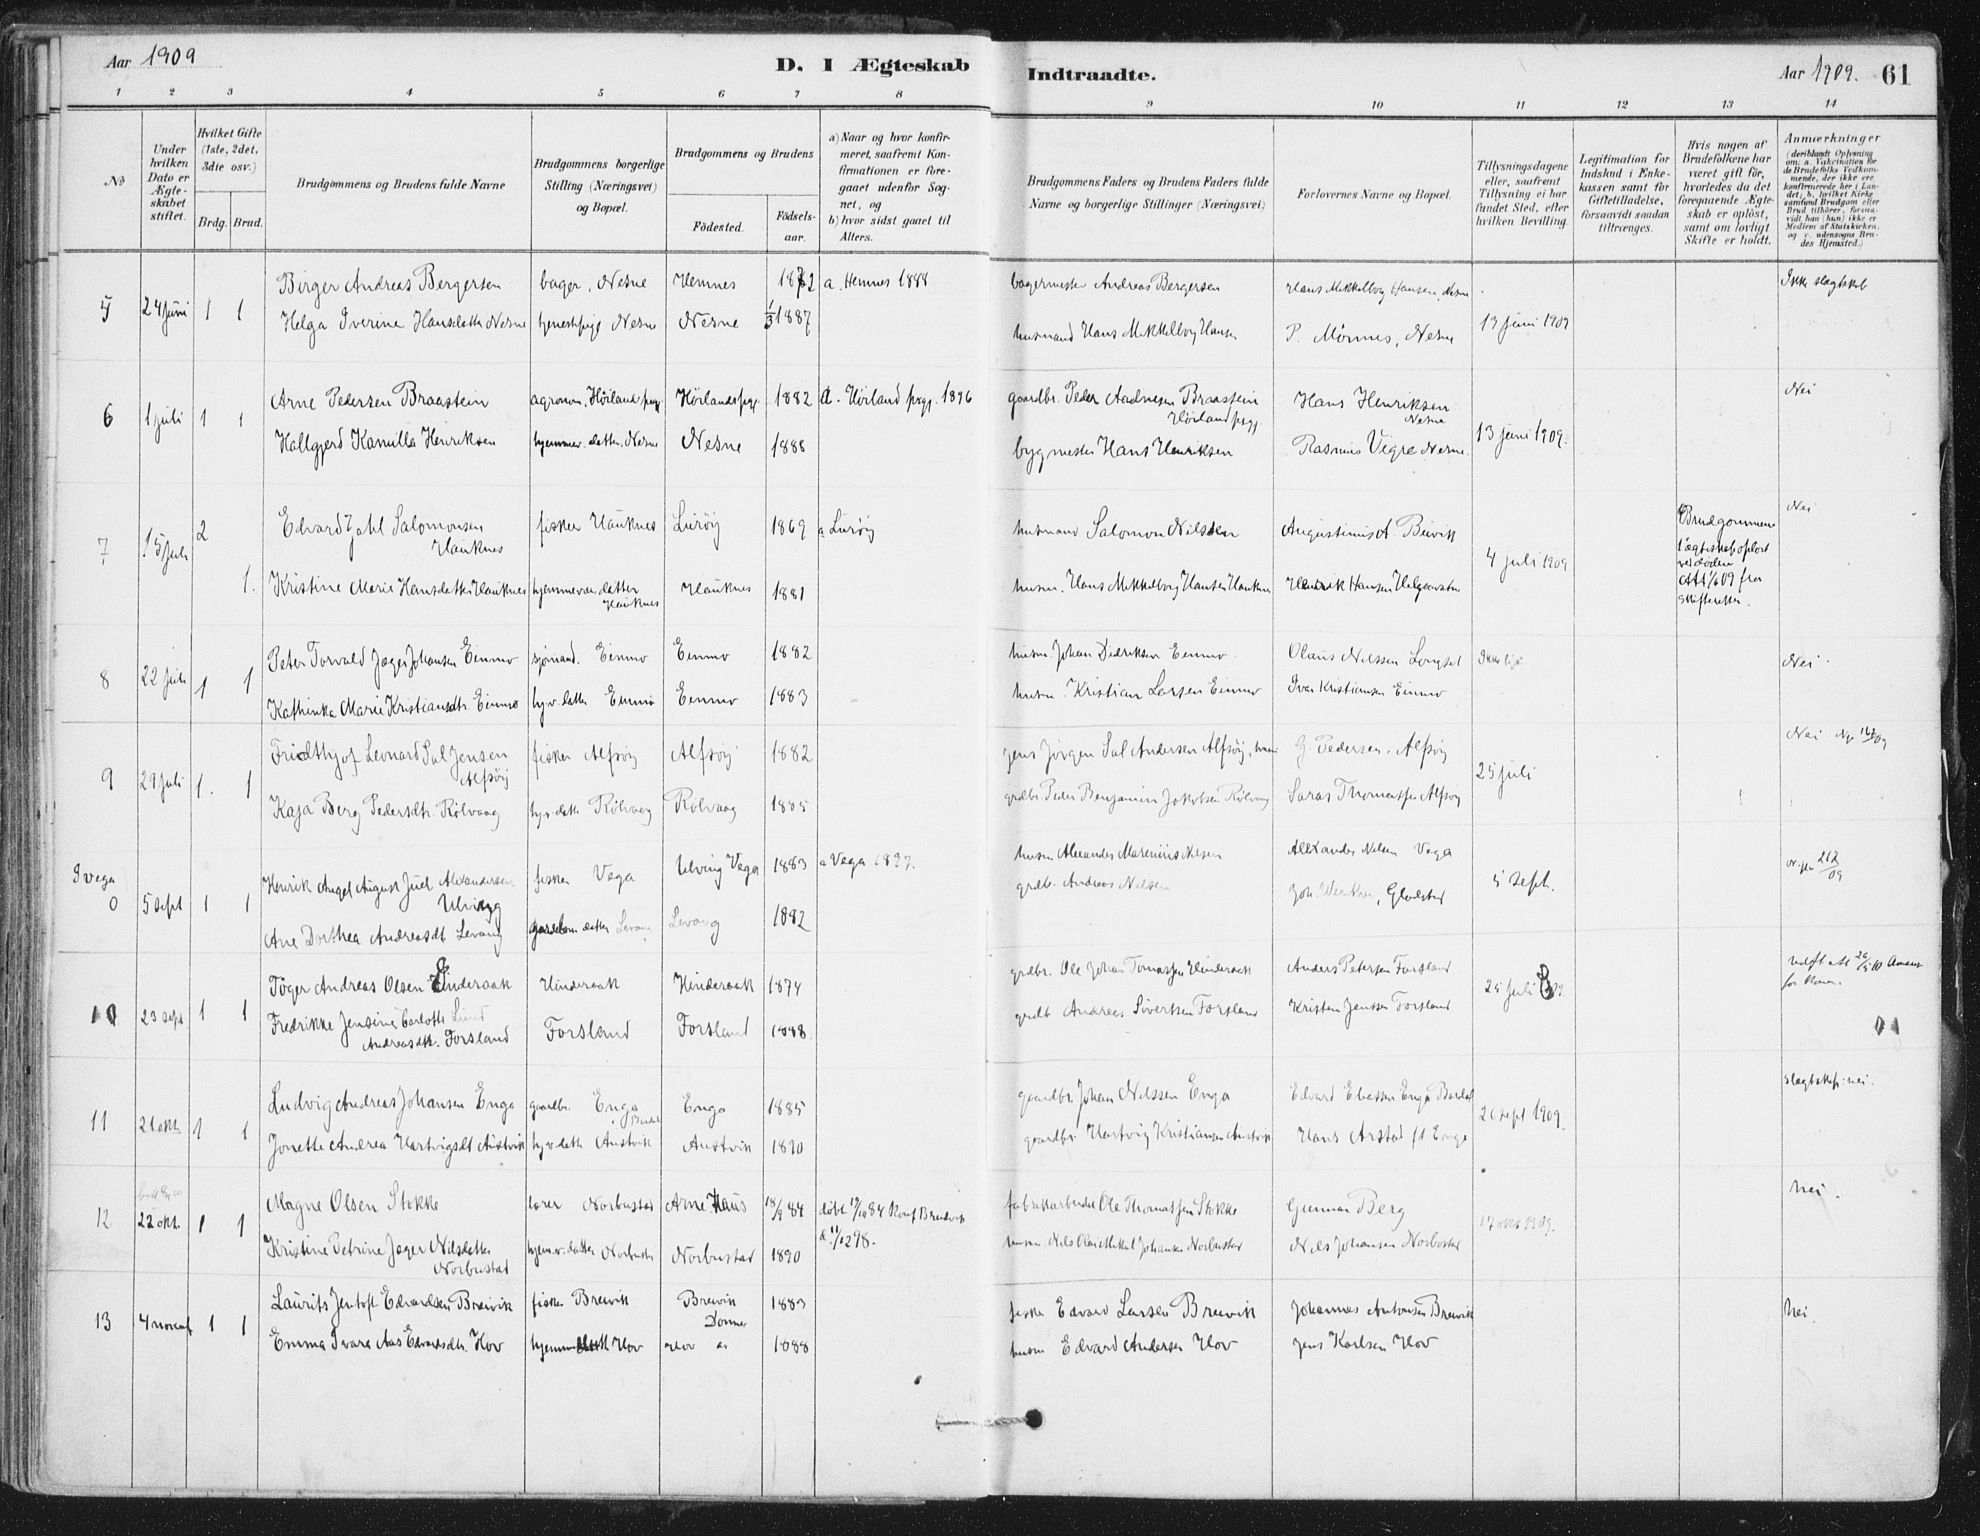 Aar 1909
D. I Ægteskab
Indtraadte.
Aar 1909. 61
1 2 3 4 5 6 7 8 9 10 11 12 13 14
No
Under hvilken Dato er Ægteskabet stiftet.
Hvilket Gifte (1ste, 2det, 3die osv.)
Brdg. Brud.
Brudgommens og Brudens fulde Navne
Brudgommens borgerlige Stilling (Næringsvei) og Bopæl.
Brudgommens og Brudens
Fødested.
Fødsels-aar.
a) Naar og hvor konfirmeret, saafremt Konfirmationen er foregaaet udenfor Sognet, og
b) hvor sidst gaaet til Alters.
Brudgommens Faders og Brudens Faders fulde Navne og borgerlige Stillinger (Næringsvei)
Forlovernes Navne og Bopæl.
Tillysningsdagene eller, saafremt Tillysning ei har fundet Sted, efter hvilken Bevilling
Legitimation for Indskud i Enkekassen samt for Giftetilladelse, forsaavidt saadan tiltrænges.
Hvis nogen af Brudefolkene har været gift før, hvorledes da det foregaaende Ægteskab er opløst, samt om lovligt Skifte er holdt.
Anmærkninger
(deriblandt Oplysning om: a. Vakcination for de Brudefolks Vedkommende, der ikke ere konfirmerede her i Landet; b. hvilket Kirkesamfund Brudgom eller Brud tilhører, forsaavidt han (hun) ikke er Medlem af Statskirken, og c. udensogns Brudes Hjemsted.)
5 24 juni 1 1 Birger Andreas Bergersen bager, Nesne Hemnes 1882 a. Hemnes 1888 bagermester Andreas Bergersen Hans Mikkelborg Hansen, Nesne Ikke slegtskab
Helga Iverine Hansdatter Nesne tjenestepige Nesne Nesne 1/3 1887 husmand Hans Mikkelborg Hansen P. Mønnes, Nesne 13 juni 1909
6 1 juli 1 1 Arne Pedersen Braastein agronom, Høiland prgj. Høilands prgj. 1882 a. Høiland prgj. 1896 gaardbr. Peder Aadnesen Braastein Høiland prgj. Hans Henriksen Nesne 13 juni 1909. Nei
Hallgjerd Kamilla Henriksen hjemmev. datter, Nesne Nesne 1888 bygmester Hans Henriksen Rasmus Vigre Nesne.
7 15 juli 2 Edvard Zahl Salomonsen Hauknes fisker Hauknes Lurøy 1869 a Lurøy husmand Salomon Nilsen Augustinus A. 4 juli 1909 Brudgommens 1' ægteskab opløst ved døden skifteretten. Nei
1. Kristine Marie Hansdatter Hauknes hjemmevær. datter Hauknes Hauknes 1881 husm. Hans Mikkelborg Hansen Hauknes Henrik Hansen
8 22 juli 1 1 Peter Torvald Jæger Johansen Einmo sjømand. Einmo Einmo 1882 husm. Johan Didriksen Einmo. Olaus Nilssen Nei.
Kathinka Marie Kristiansdtr. Einmo hj.v. datter Einmo Einmo 1883 husm. Kristian Larsen Einmo Ivar Kristiansen Einmo
9 29 juli 1. 1 Fridthjof Leonard Sal Jensen Alfsøy fisker Alfsøy Alfsøy 1882 Jens Jørgen Sal Andersen Alfsøy, husm G. Pedersen. Alfsøy 25 juli Nei
Kaja Berg Pedersdtr. Rølvaag hj.v. datt. Rølvaag Rølvaag 1885 grdbr. Peder Benjamin Jakobsen Rølvaag
I Vega 0 5 sept 1 1 Henrik Angel August Juel Alexandersen Ulvingg fisker Vega Ulving Vega 1883 a Vega 1897. husm Alexander Marenius Nilsen Alexander Nilsen Vega 5 sept.
Ane Dorthea Andreasdt Levang datter Levang Levang 1882 grdbr. Andreas Nilsen Joh. Gladstad
10 23 sept 1 1 Tøger Andreas Olsen Hinderaak Hinderaak Hinderaak 1874 grdbr. Ole Johan Tomassen Hinderaak Anders Petersen Forsland 25 juli
Fredrikke Jensine Carlotte Lund Andreasdtr. Forsland Forsland Forsland 1888. grdb Andreas Sivertsen Forsland Kristen Jenssen Forsland
11 21 okt. 1 1 Ludvig Andreas Johansen Enga gaardbr. Enga Bardal Enga 1885 gaardbr. Johan Nilssen Enga Edvard Eliassen Enga Bardal 26 sept 1909. slegtskap: nei.
Jonette Andrea Hartvigsdt Austvik hj.v. datter Austvik Austvik 1890 gaardbr. Hartvig Kristiansen Austvik Hans Arstad Enga
12 22 okt. 1 1 Magne Olsen Stokke lærer Norbustad Arne Haus 18/9 84 Fabrikarbeider Ole Thomassen Stokke Gunnar Berg 17 okt 1909. nei.
Kristine Petrine Jæger Nilsdatter Norbustad hjem.v. datter Norbustad Norbustad 1890 husm. Nils Olai Mikkel Johansen Norbustad Nils Johansen Norbostad
13 4 novemb 1 1 Laurits Jentoft Edvardsen Breivik fisker Breivik Breivik Dønnes 1883 fisker Edvard Larsen Breivik Johannes Antonsen Breivik nei.
Emma Ivara Aas Edvardsdtr. Hov Hov Hov 1888 husm Edvard Andersen Hov Jens Karlsen Hov